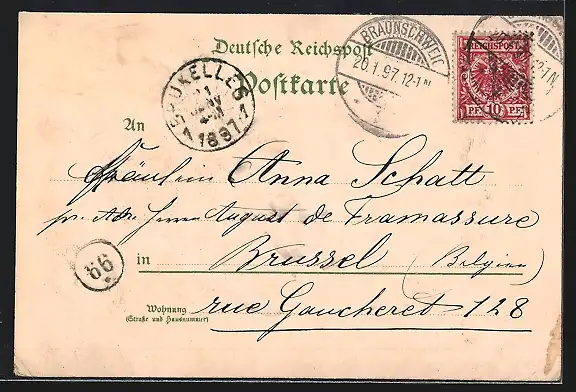 Deutsche Reichspost
Postkarte
BRAUNSCHWEIG
20.1.97. 12-1N
REICHSPOST
10 PF. 10 PF.
BRUXELLES
1
1897
An
Fräulein Anna Schatt
pr. Adr. Herrn August de Framassure
in Brussel (Belgien)
66
Wohnung rue Gaucheret 128
(Straße und Hausnummer)